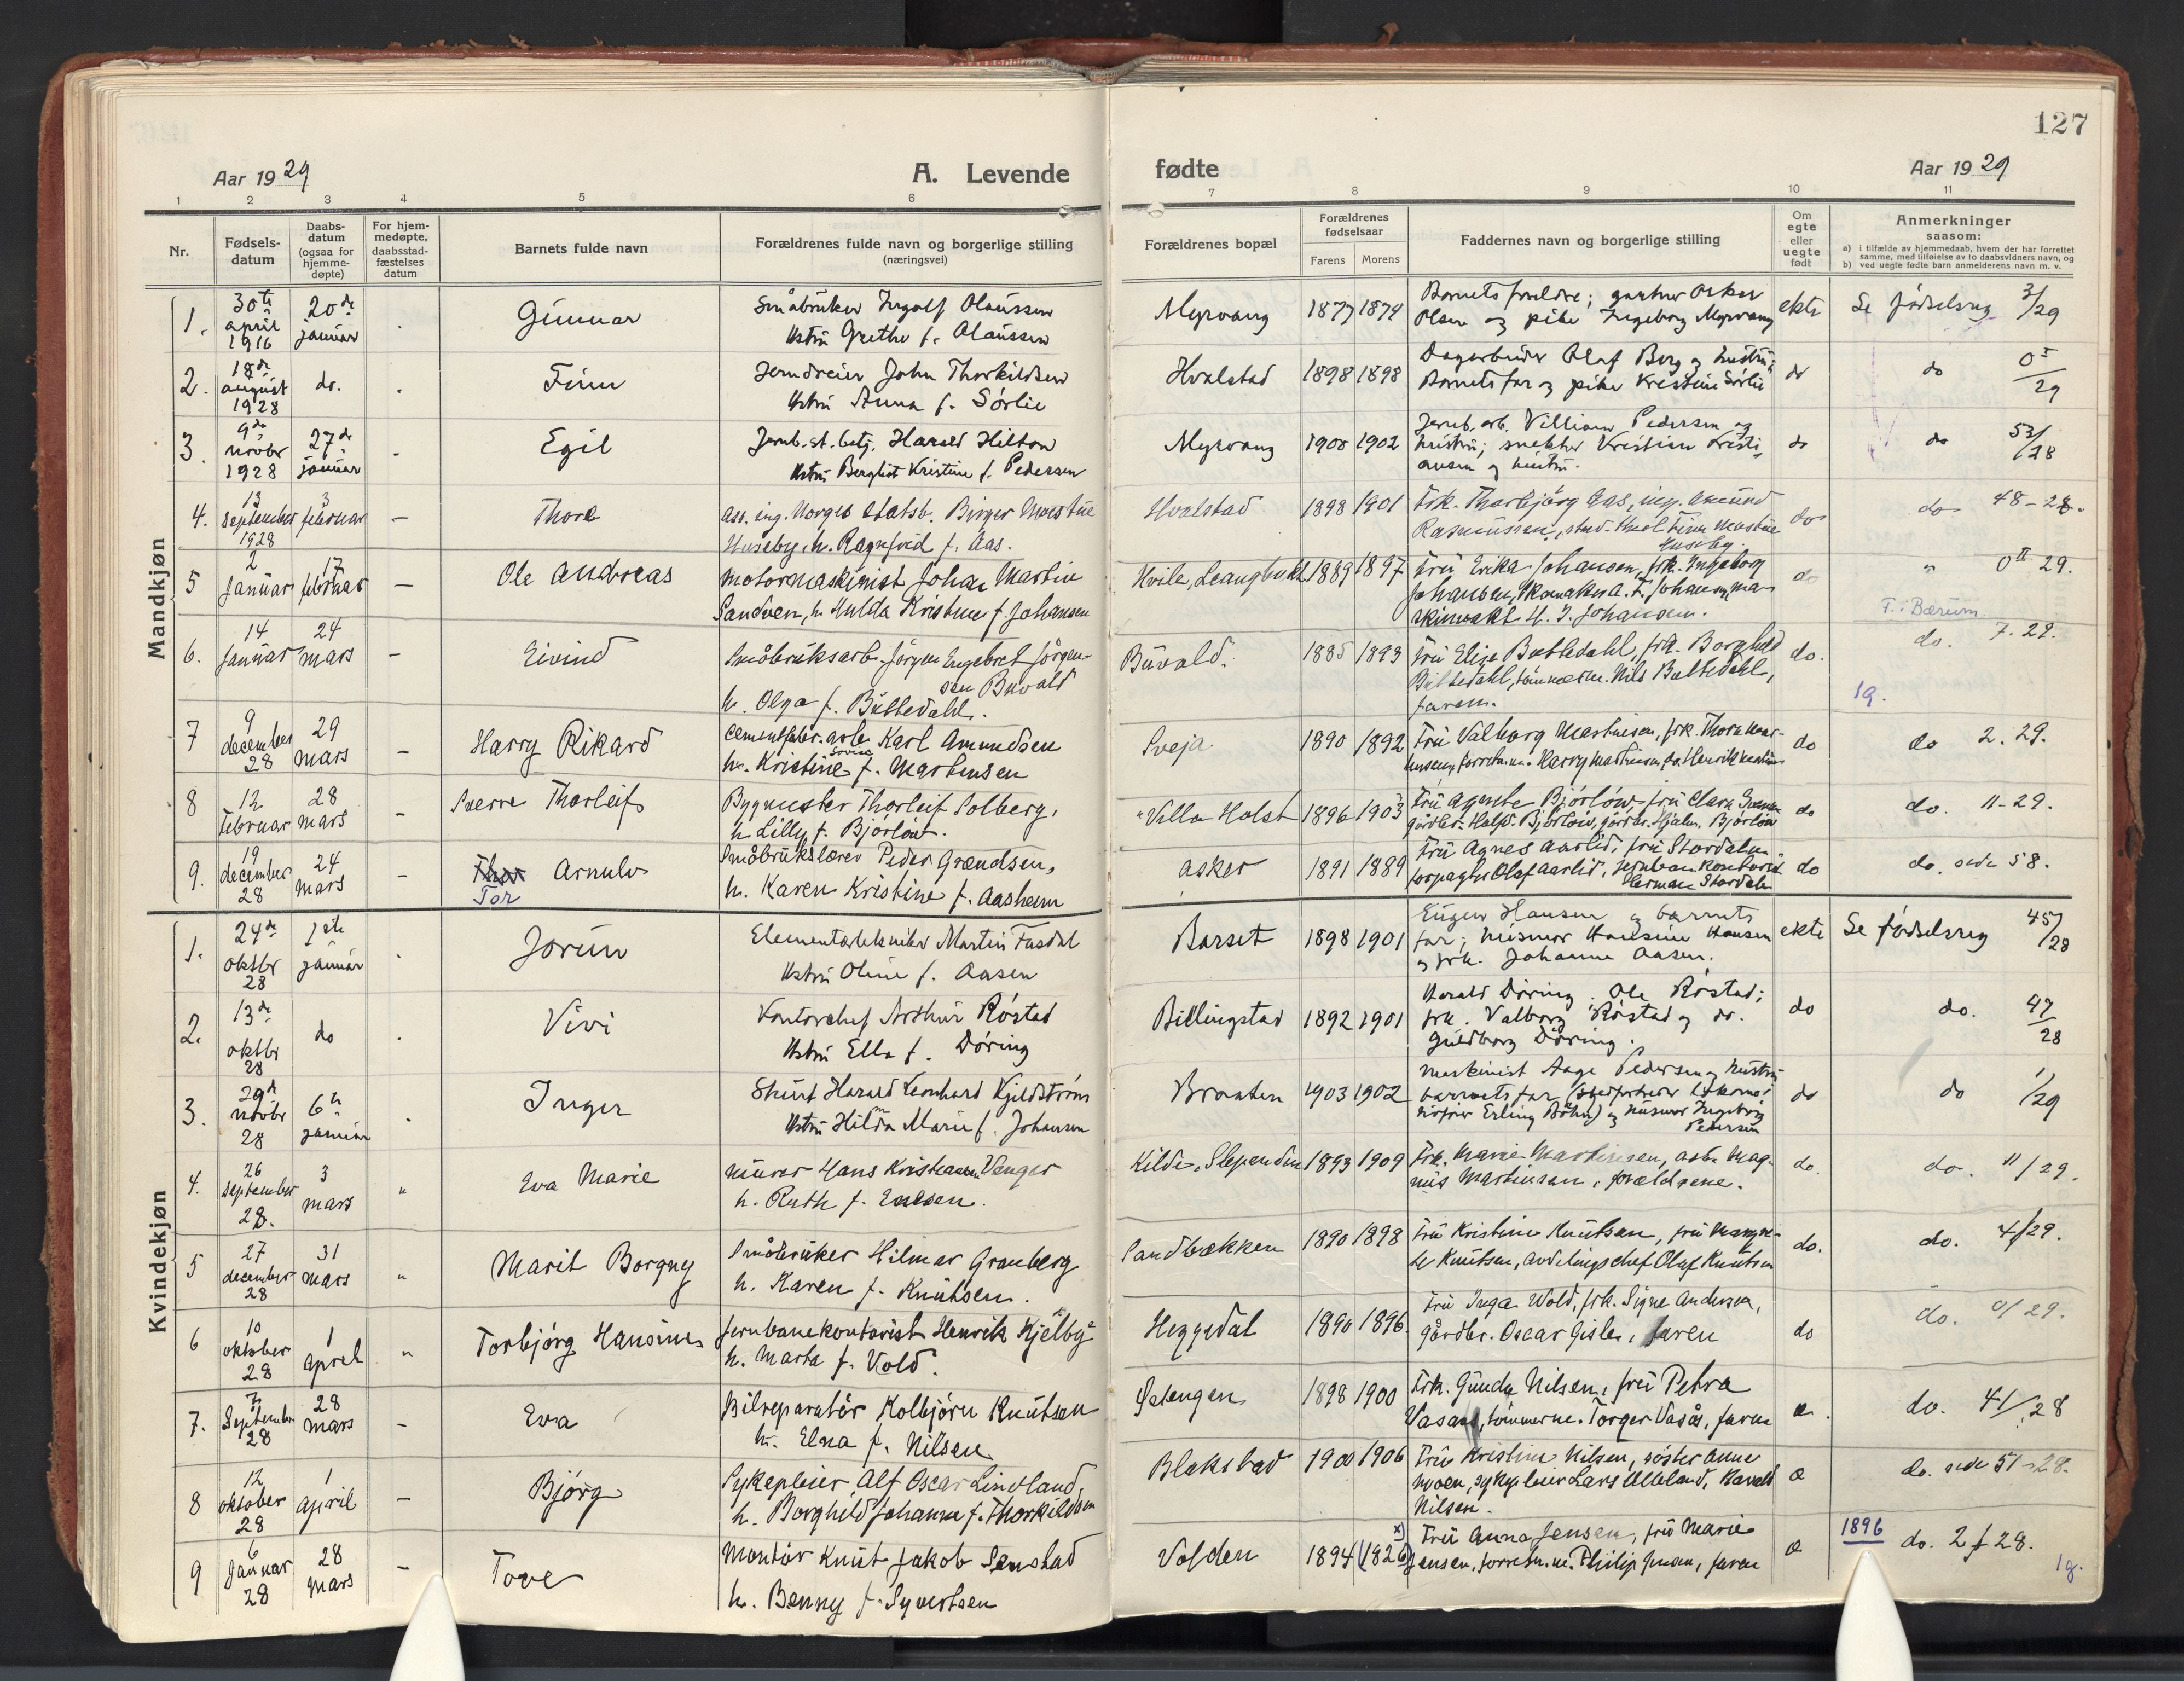 127
Aar 1929
A. Levende fødte
Aar 1929
1 2 3 4 5 6 7 8 9 10 11
Nr.
Fødsels-
datum
Daabs-
datum
(ogsaa for
hjemme-
døpte)
For hjem-
medøpte,
daabsstad-
fæstelses
datum
Barnets fulde navn
Forældrenes fulde navn og borgerlige stilling
(næringsvei)
Forældrenes bopæl
Forældrenes
fødselsaar
Farens Morens
Faddernes navn og borgerlige stilling
Om
egte
eller
uegte
født
Anmerkninger
saasom:
a) i tilfælde av hjemmedaab, hvem der har forrettet
samme, med tilføielse av to daabsvidners navn, og
b) ved uegte fødte barn anmelderens navn m. v.
Mandkjøn
1. 30te april 1916 20de januar Gunnar
Småbruker Ingolf Olaussen
Hstru Grethe f. Olaussen
Myrvang 1877 1879
Barnets foreldre; gartner Oskar
Olsen og pike Ingeborg Myrvang
ekte Se fødselsreg 3/29
2. 18de august 1928 do. Finn
Jerndreier John Thorkildsen
Hstru Anna f. Sørlie
Hvalstad 1898 1898
Dagarbeider Olaf Berg og hustru;
Barnets far og pike Kristine Sørlie
do do 0I/29
3. 9de novbr 1928 27de januar - Egil
Jernb.st.betj. Harald Hilton
Hstru Berghit Kristine f. Pedersen
Myrvang 1900 1902
Jernb.arb. Villiam Pedersen og
hustru; snekker Kristian Kristi,
ansen og hustru.
do do 53/28
4. 13 september 1928 3 februar - Thore
Ass. ing. Norges Statsb. Birger Moestue
Huseby, h. Ragnfrid f. Aas.
Hvalstad 1898 1901
Frk. Thorbjörg Aas, ing. Amund
Rasmussen, stud. Finn Moestue
Huseby.
do do 48-28.
5 2 januar 17 februar - Ole Andreas
Motormaskinist Johan Martin
Sandven, h. Hulda Kristine f. Johansen
Hvile, Leangbukt 1889 1897
Fru Erika Johansen, frk. Ingeborg
Johansen, skomaker A. F. Johansen, ma-
skinvakt H. J. Johansen.
do " 0II 29.
F. i Bærum
6. 14 januar 24 mars - Eivind
Småbruksarb. Jörgen Engebret Jörgen-
sen Buvald
h. Olga f. Büttedahl.
Büvald. 1885 1893
Fru Elise Buttedahl, frk. Borghild
Buttedahl, tømmerm. Nils Buttedahl,
faren.
do. do. 7.29.
19.
7 9 december 28 29 mars - Harry Rikard
Cementfabr. arb. Karl Amundsen
h. Kristine Lovise f. Martinsen
Sveja 1890 1892
Fru Valborg Martinsen, frk. Thora Mar-
tinsen, forretn.m. Harry Martinsen, do. Henrik Martinsen
do do 2.29.
8 12 februar 28 mars - Sverre Thorleif
Bygmester Thorleif Solberg,
h. Lilly f. Bjørløw.
"Villa Holst 1896 1903
Fru Agnethe Bjørløw, fru Clara
gårdbr. Halfd. Bjørløw, gårdbr. Hjalm. Bjørløw
do do. 11-29.
9. 19 december 28 24 mars - Thor Arnulv
Tor
Småbrukslærer Peder Grændsen,
h. Karen Kristine f. Aasheim
Asker 1891 1889
Fru Agnes Aarlid, fru Stordalen
forpagter Olaf Aarlid, jernbanekontorist
Herman Stordalen
do do. side 58.
Kvindekjøn
1. 24de oktbr 28 1ste januar Jorun
Elementærtekniker Martin Fusdal
Hstru Oline f. Aasen
Barset 1898 1901
Eugen Hansen og barnets
far; husmor Hansine Hansen
og frk. Johanne Aasen.
ekte Se fødselsreg 45/28
2. 13de oktbr 28 do Vivi
Kontorchef Arthur Röstad
Hstru Ella f. Döring
Billingstad 1892 1901
Harald Döring; Ole Röstad;
frk. Valborg Röstad og do.
Guldborg Döring.
do do. 47/28
3. 29d novbr 28 6te januar Inger
Harald Leonhard Kjeldström
Hstru Hilda Marie f. Johansen
Braaten 1903 1902
Maskinist Aage Pedersen og hustru
barnets far (stedfortreder
Erling Böhn) og husmor Ingeborg
Pedersen
do do 1/29
4. 26 september 28. 3 mars " Eva Marie
Murer Hans Kristiansen Venger
h. Ruth f.
Kilde, Slependen 1893 1909
Frk. Marie Martinsen, arb. Mag-
nus Martinsen, forældrene.
do. do. 11/29.
5 27 december 28 31 mars " Marit Borgny
Småbruker Hilmar Granberg
h. Karen f. Knutsen.
Sandbækken 1890 1898
Fru Kristine Knutsen, fru Margre-
te Knutsen, avdelingschef Olaf Knutsen
do. do. 4/29.
6 10 oktober 28 1 april " Torbjörg Hansine
Jernbanekontorist Henrik Kjelby
h. Marta f. Vold.
Heggedal 1890 1896.
Fru Inga Wold, frk. Signe Andersen,
gårdbr. Oscar Gisle, faren
do do. 0/29.
7. 7 September 28 28 mars - Eva
Bilreparatör Kolbjörn Knutsen
h. Elna f. Nilsen
Østengen 1898 1900
Frk. Gunda Nilsen, fru Petra
Vasaas, tömmerm. Torger Vasås, faren
e. do. 41/28
8 12 oktober 28 1 april - Bjørg
Sykepleier Alf Oscar Lindland,
h. Borghild Johanne f. Thorkildsen
Blakstad 1900 1906
Fru Kristine Nilsen, söster Anne
Moen, sykepleier Lars Ulleland, Harald
Nilsen.
e do. side 51-28.
9 6 Januar 28 28 mars - Tove
Montör Knut Jakob Semstad
h. Benny f. Syvertsen
Volden 1894 (1826) x)
Fru Anna Jensen, fru Marie
Jensen, forretn.m. Philip Jensen, faren
e 1896 do. 2/28.
19.